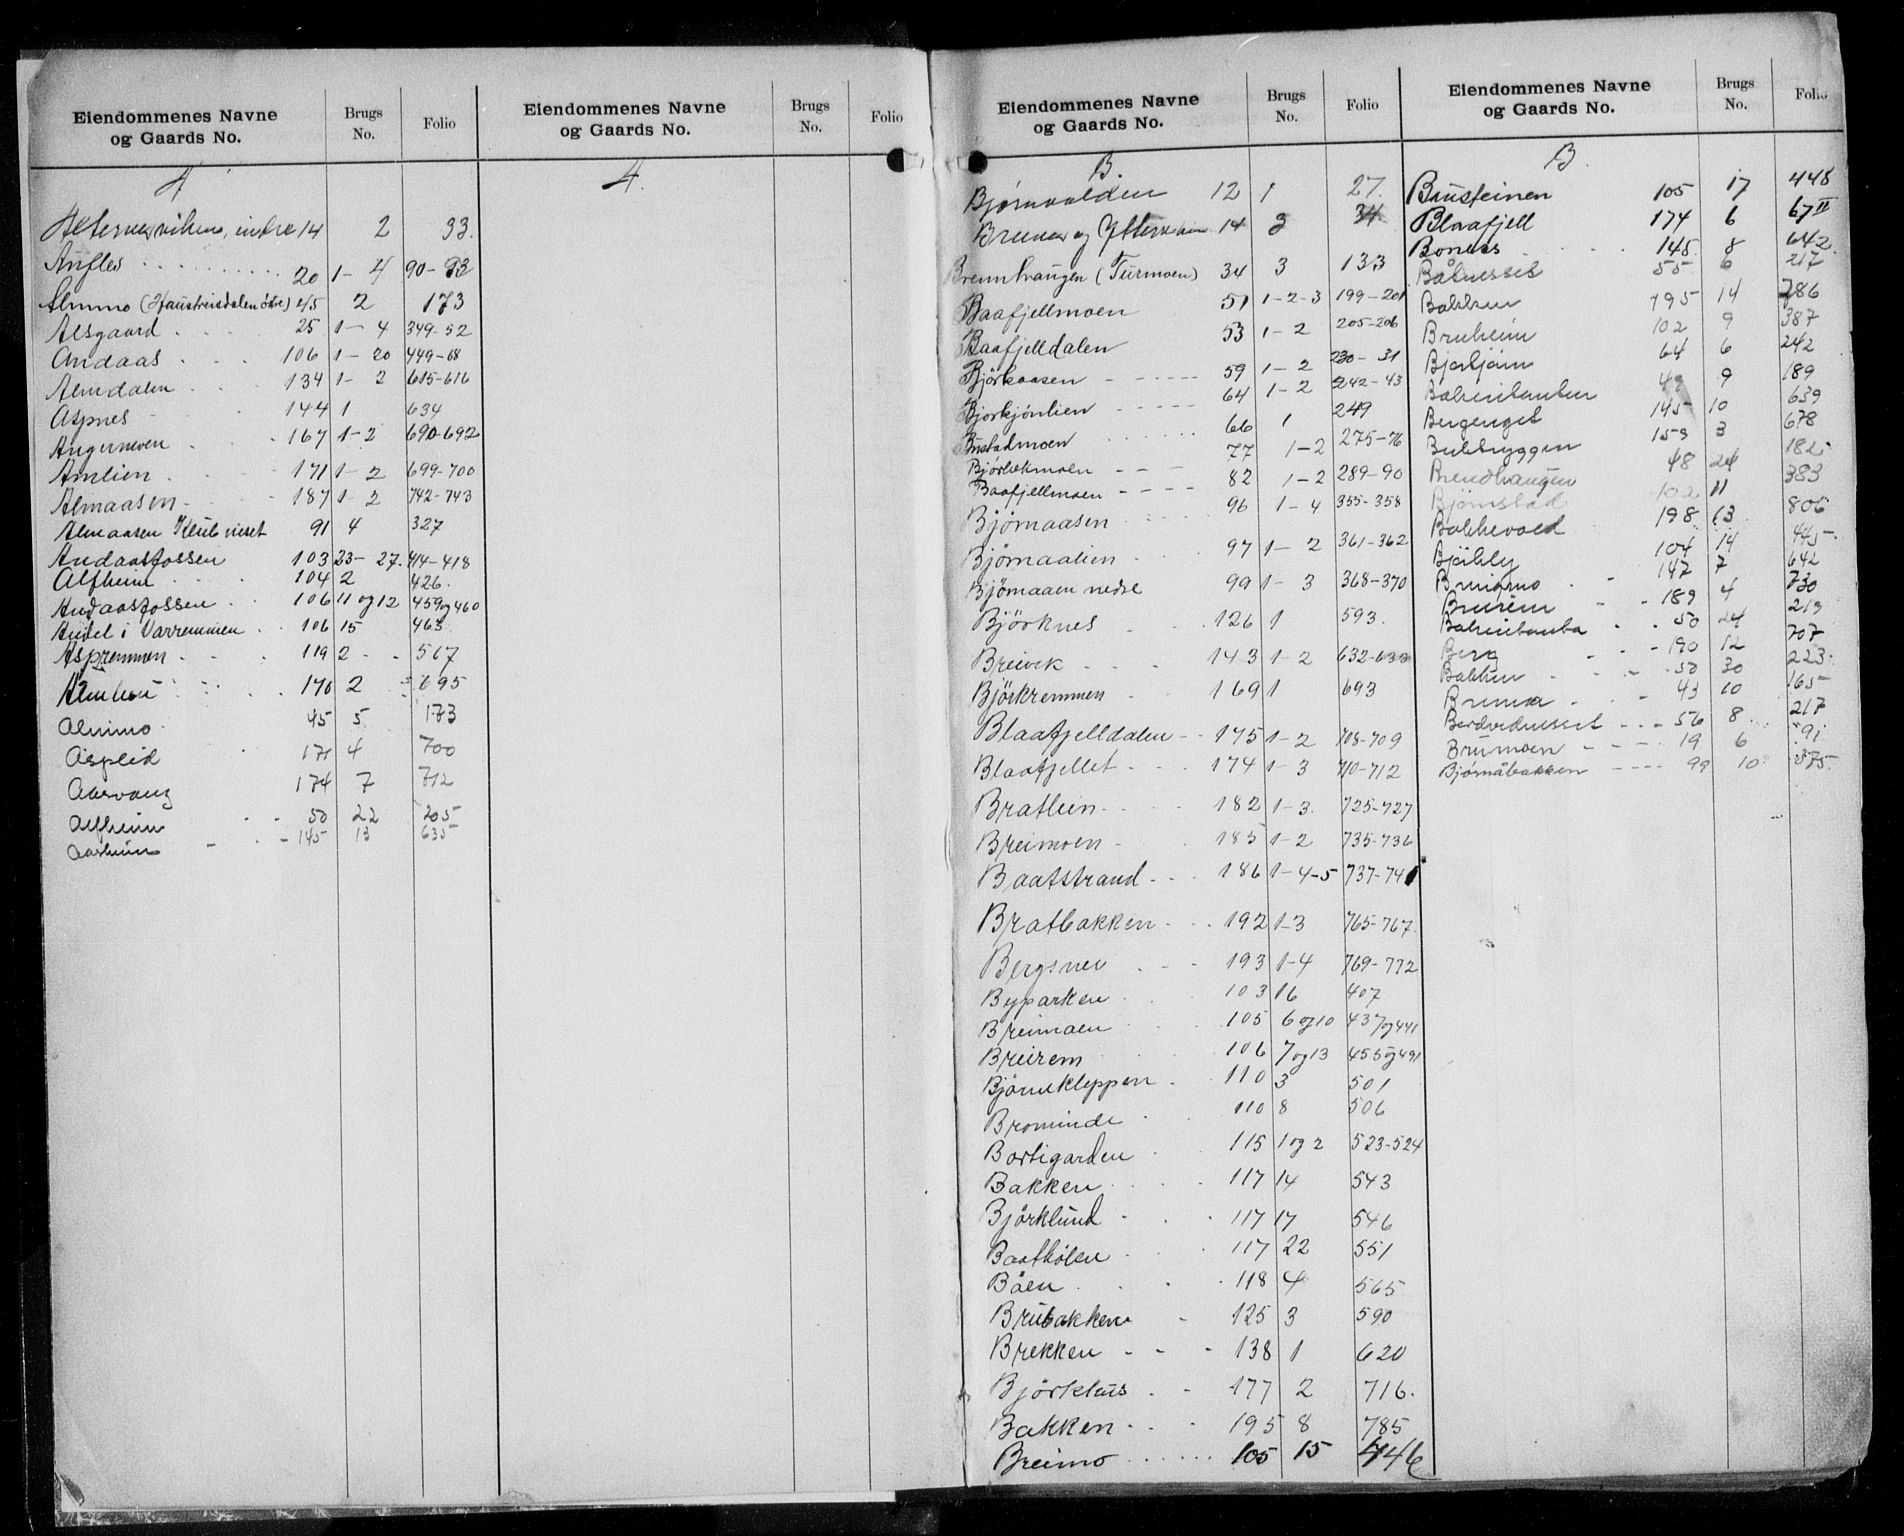 Eiendommenes Navne og Gaards No. Brugs No. Folio
A
Alternesvikens, indre 14 2 33.
Aufles 20 1-4 90-93
Almmo (Haustreisdalen øvre) 45 2 173
Alsgaard 25 1-4 349-52
Andaas 106 1-20 449-68
Almdalen 134 1-2 615-616
Aspnes 144 1 634
Angermoen 167 1-2 690-692
Amlien 171 1-2 699-700
Almaasen 187 1-2 742-743
Almaasen Klubneset 91 4 327
Andaasfossen 103 23-27. 414-418
Alfheim 104 2 426.
Andaasfossen 106 11 og 12 459 og 460
Andel i Varremmen 106 15 463
Aspremmen 119 2 567
Almlien 170 2 695
Almmo 45 5 173
Asplid 171 4 700
Aasvang 174 7 712
Alfheim 50 22 205
Aasheim 145 13 635
Eiendommenes Navne og Gaards No. Brugs No. Folio
A.
Eiendommenes Navne og Gaards No. Brugs No. Folio
B.
Bjørnvolden 12 1 27.
Brenes og Ytteren 14 3 34.
Brennhaugen (Turmoen) 34 3 133
Baafjellmoen 51 1-2-3 199-201
Baafjelldalen 53 1-2 205-206
Bjørkaasen 59 1-2 230-31
Bjorkjønlien 64 1-2 242-43
Brustadmoen 66 1 249
Bjørbekmoen 77 1-2 275-76
Baafjellmoen 82 1-2 289-90
Bjørnaasen 96 1-4 355-358
Bjørnaalien 97 1-2 361-362
Bjørnaaen nedre 99 1-3 368-370
Bjørknes 126 1 593.
Breivik 143 1-2 632-633
Bjørkremmen 169 1 693
Blaafjelldalen 175 1-2 708-709
Blaafjellet 174 1-3 710-712
Bratlien 182 1-3. 725-727
Breimoen 185 1-2 735-736
Baatstrand 186 1-4-5 737-741
Bratbakken 192 1-3 765-767
Bergsnev 193 1-4 769-772
Byparken 103 16 407
Breimoen 105 6 og 10 437 og 441
Breirem 106 7 og 13 455 og 491
Bjørnekleppen 110 3 501
Brominde 110 8 506
Bortigarden 115 1 og 2 523-524
Bakken 117 14 543
Björklund 117 17 546
Baathölen 117 22 551
Båen 118 4 565
Brubakken 125 3 590
Brekken 138 1 620
Björkhus 177 2 716.
Bakken 195 8 785
Breimo 105 15 446
Eiendommenes Navne og Gaards No. Brugs No. Folio
B.
Brusteinen 105 17 448
Blaafjell 174 6 67 II
Bones 145 8 642
Bålnesset 55 6 217
Bakken 195 14 786
Bruheim 102 9 387
Bjørkjønn 64 6 242
9 189
Bergenget 145 10 639
159 3 678
Brendhaugen 48 24 182
Bjørnstad 102 11 383
Bakkevold 198 13 806
Bjørkly 104 14 445
Breimo 147 7 642
Breirem 189 4 730
50 24 213
Berg 190 12 707
Bakken 50 30 223
43 10 165
56 8 217
Brumoen 19 6 91
Bjørnåbakken 99 10 375.